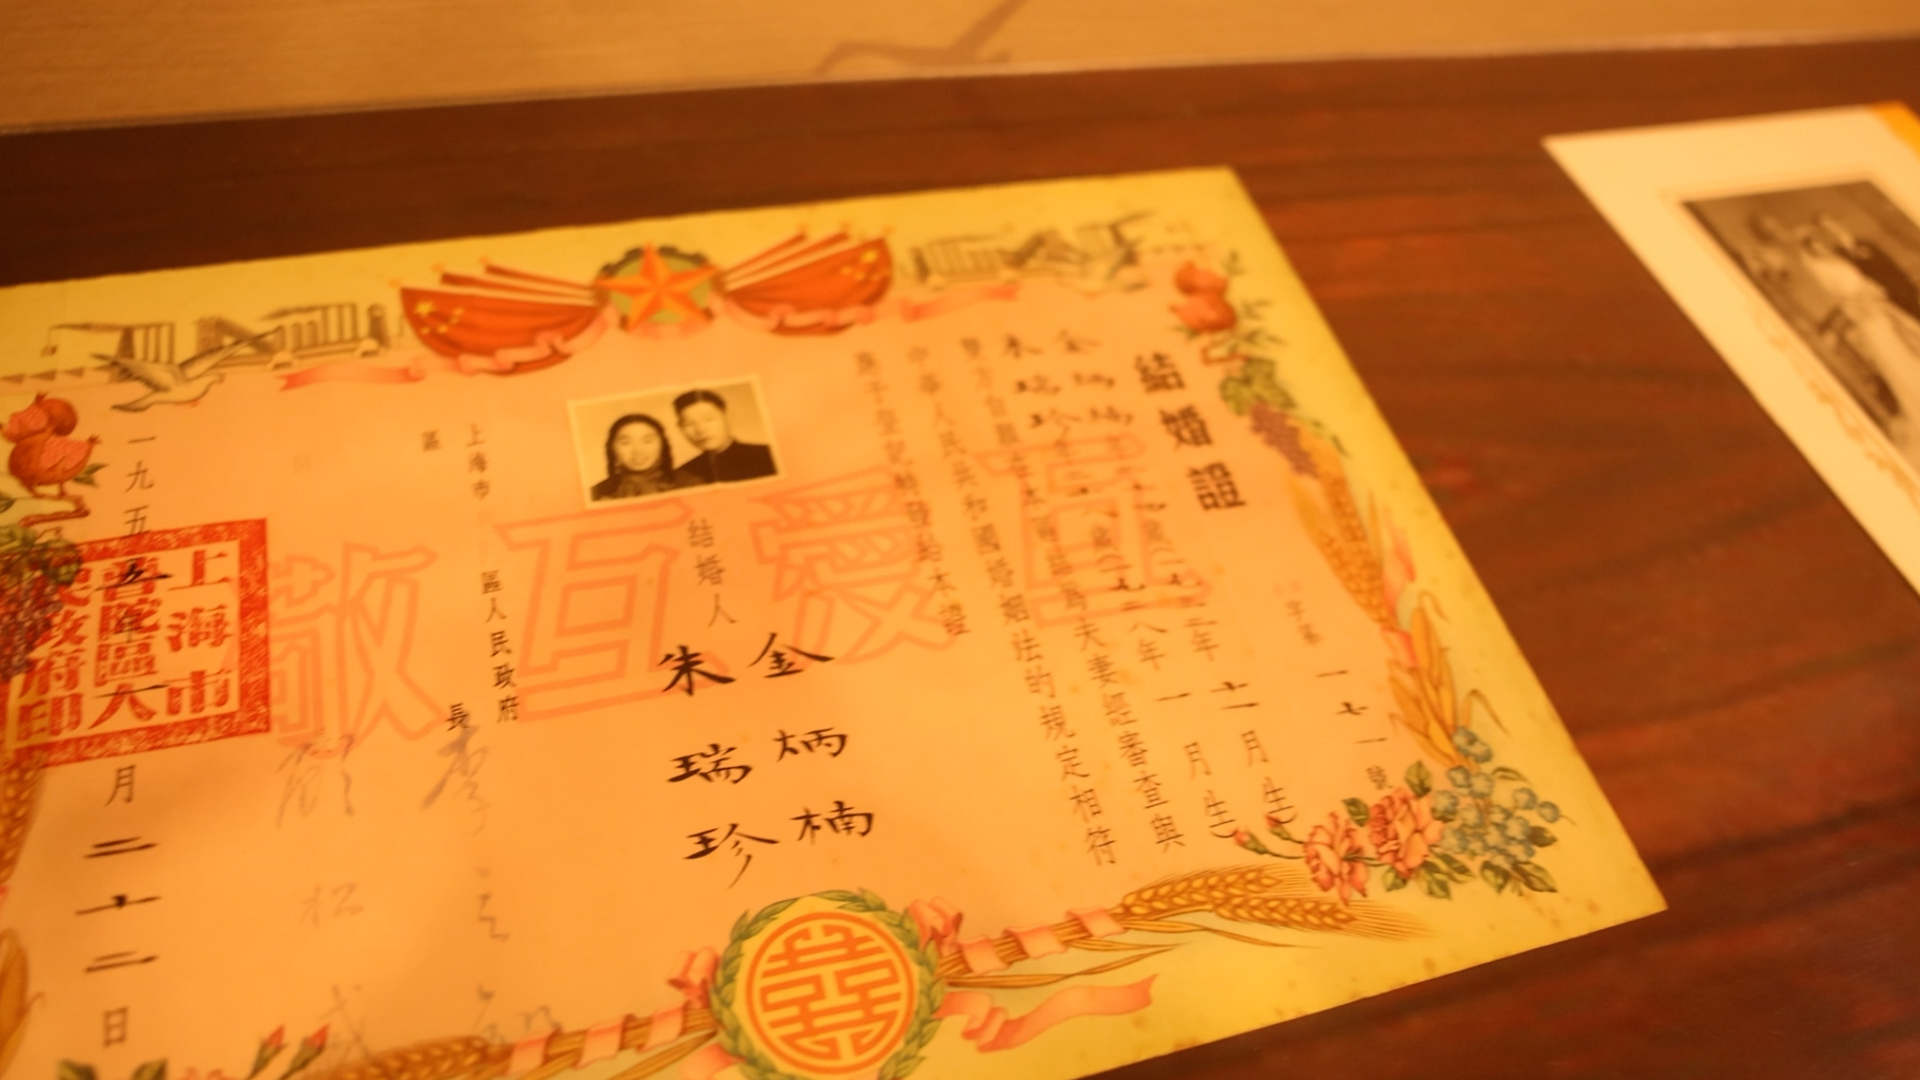 結婚證
字第一七一號
金炳楠
年十一月生)
朱瑞珍
八年一月生)
雙方自願結為夫妻經審查與
中華人民共和國婚姻法的規定相符
准予登記結婚發給本證
互愛互敬
結婚人
金炳楠
朱瑞珍
上海市
區人民政府
區長
一九五
月二十二日
上海市
普陀區人
民政府印